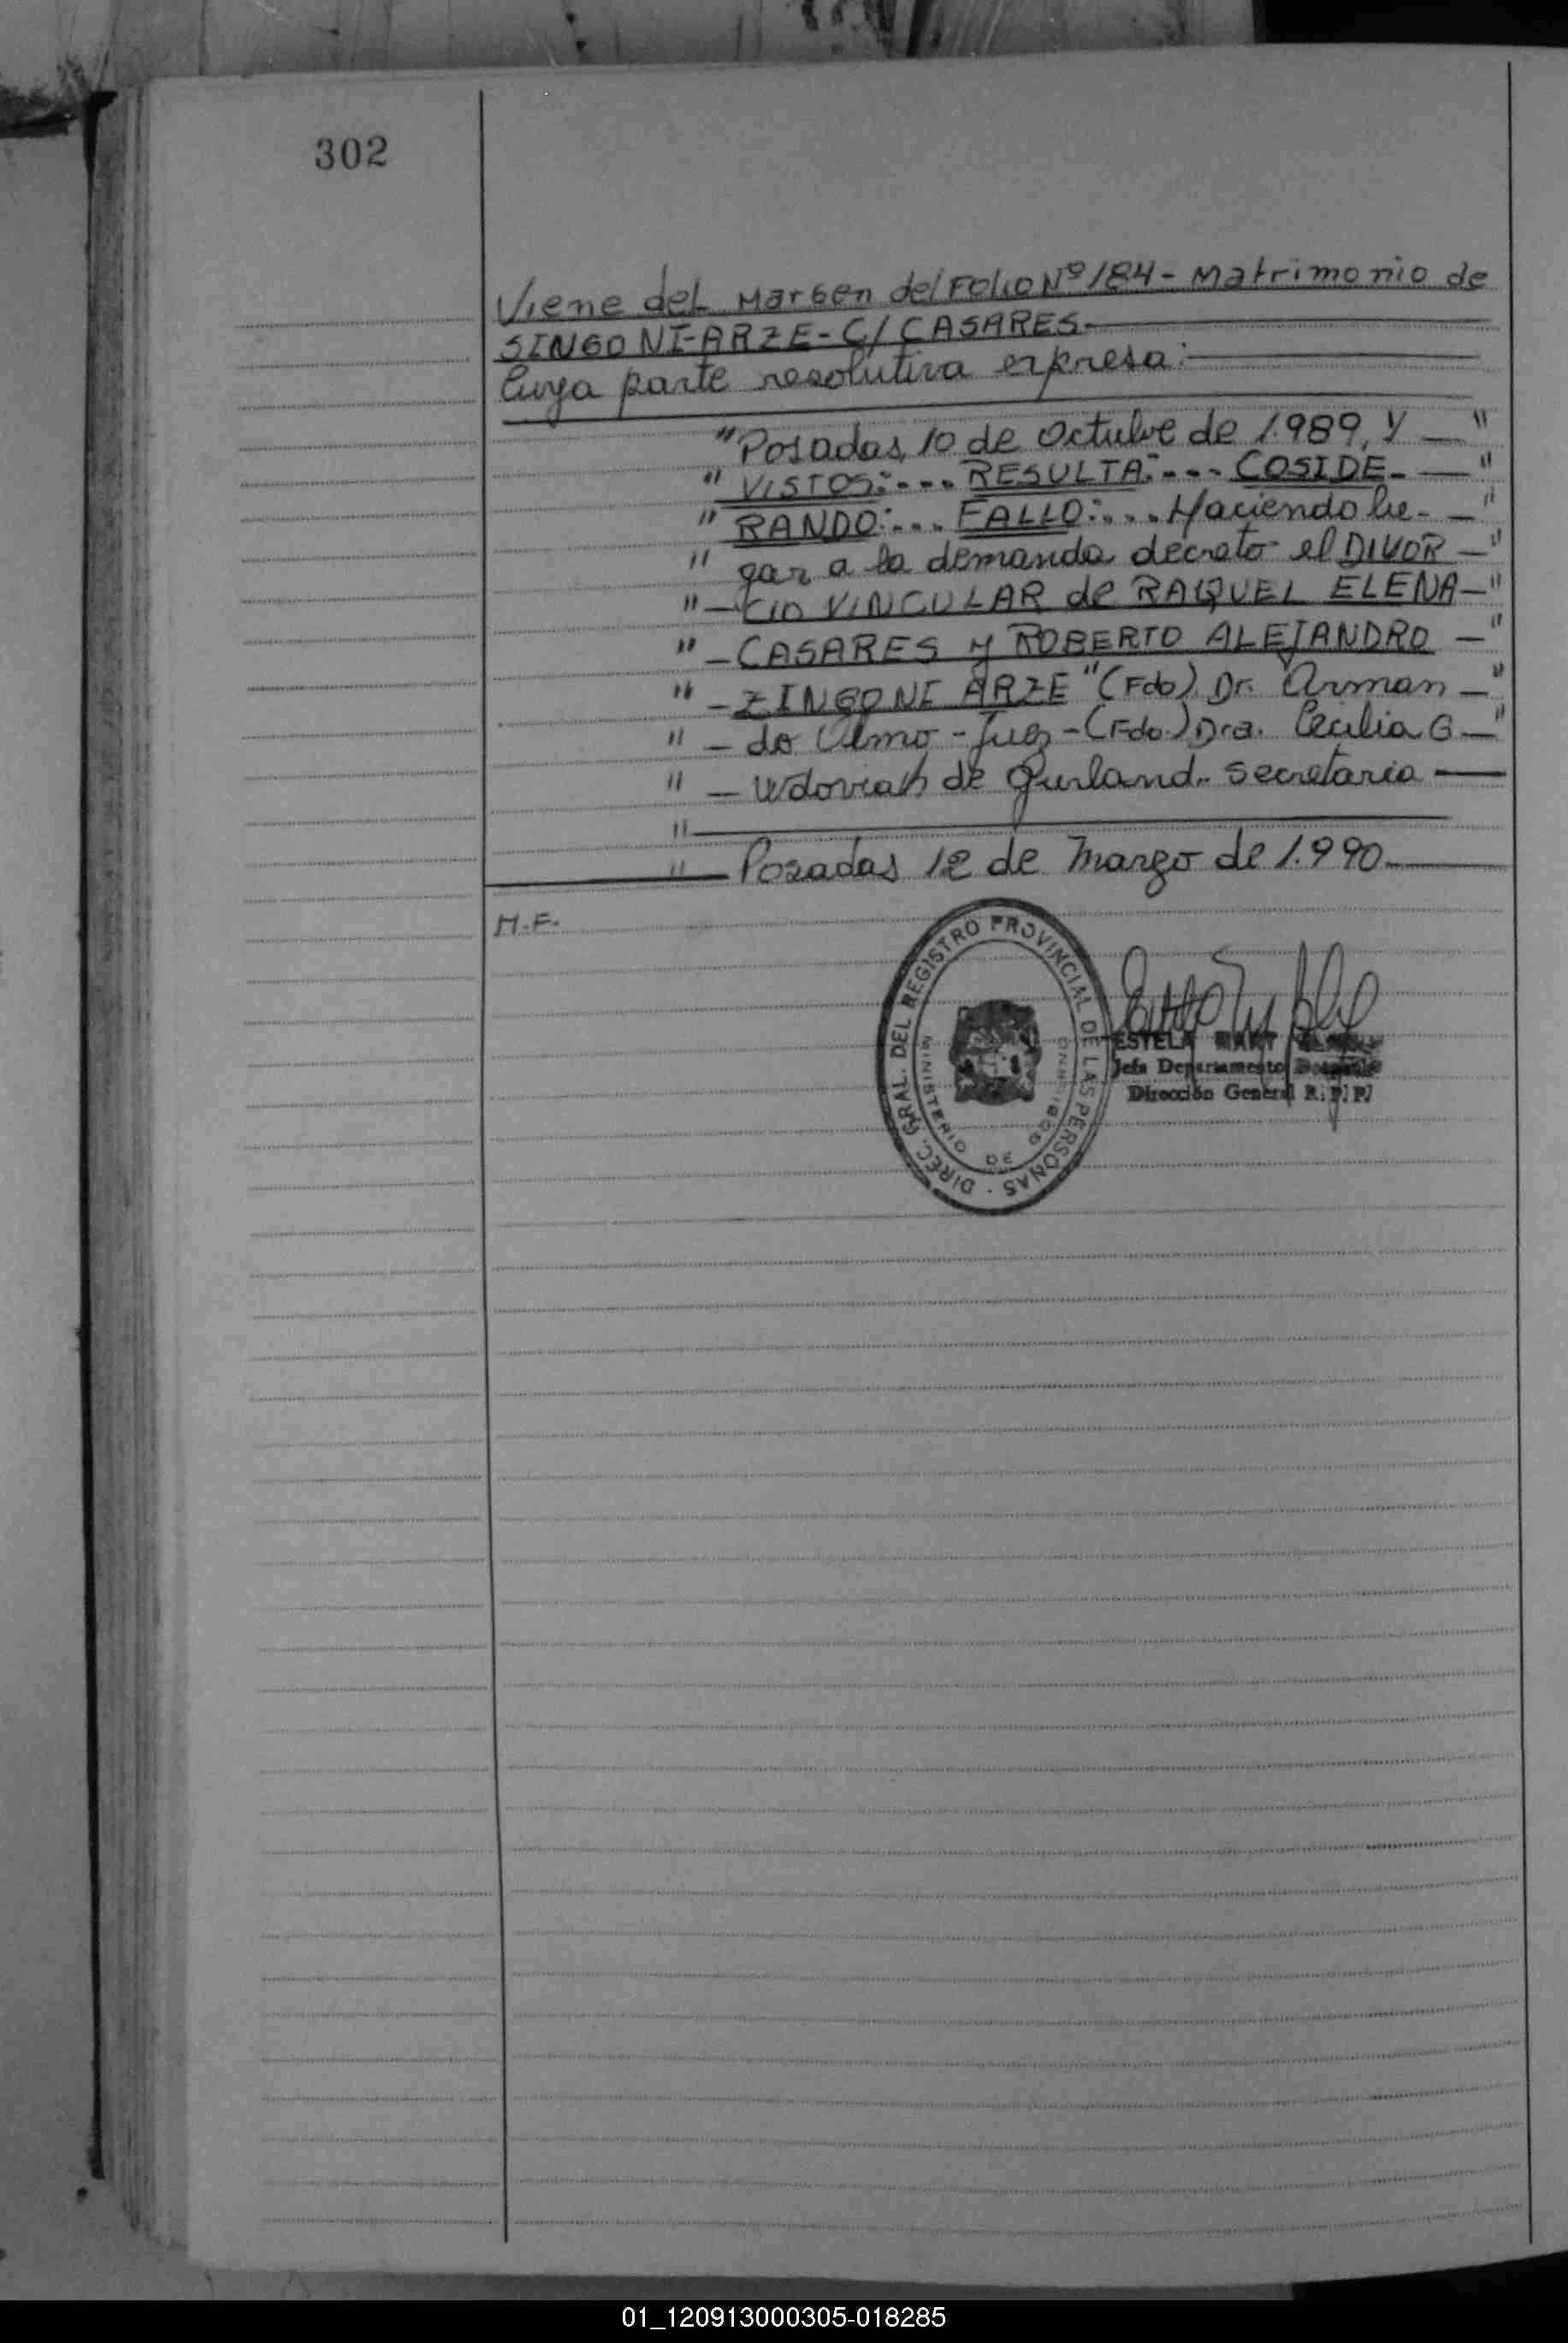 302
Viene del Margen del Folio Nº 184 - Matrimonio de
SINGONI-ARZE - C/ CASARES
Cuya parte resolutiva expresa:
"Posadas, 10 de Octubre de 1.989, y — "
" VISTOS:... RESULTA:... COSIDE- — "
" RANDO:... FALLO:... Haciendo lu- — "
" gar a la demanda decreto el DIVOR — "
" — CIO VINCULAR de RAQUEL ELENA — "
" — CASARES y ROBERTO ALEJANDRO — "
" — ZINGONI ARZE" (Fdo) Dr. Arman — "
" — do Olmo - Juez - (Fdo.) Dra. Cecilia G — "
" — de Gurland. Secretaria —
"
" — Posadas 12 de Marzo de 1.990.
M.F.
DIREC. GRAL. DEL REGISTRO PROVINCIAL DE LAS PERSONAS
MINISTERIO DE GOBIERNO
ESTELA
Jefa Departamento
Dirección General R.P.P.
01_120913000305-018285